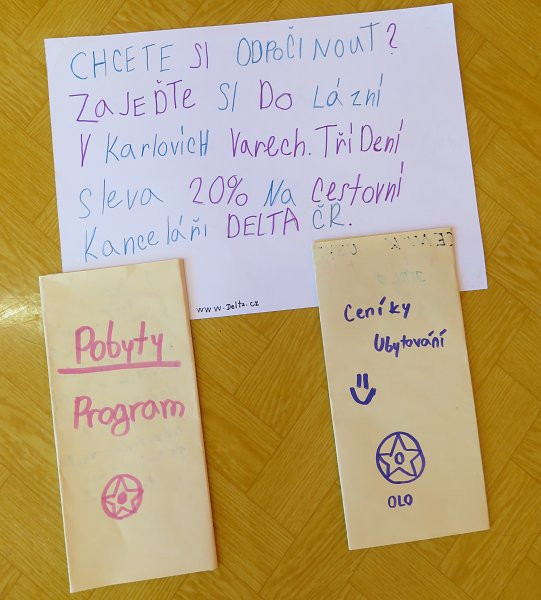 CHCETE SI ODPOČINOUT?
ZAJEĎTE SI DO LÁZNÍ
V KARLOVICH VARECH. TŘÍ DENÍ
SLEVA 20% NA CESTOVNÍ
KANCELÁŘI DELTA ČR.
WWW.DELTA.CZ
Pobyty
Program
Ceníky
Ubytování
OLO